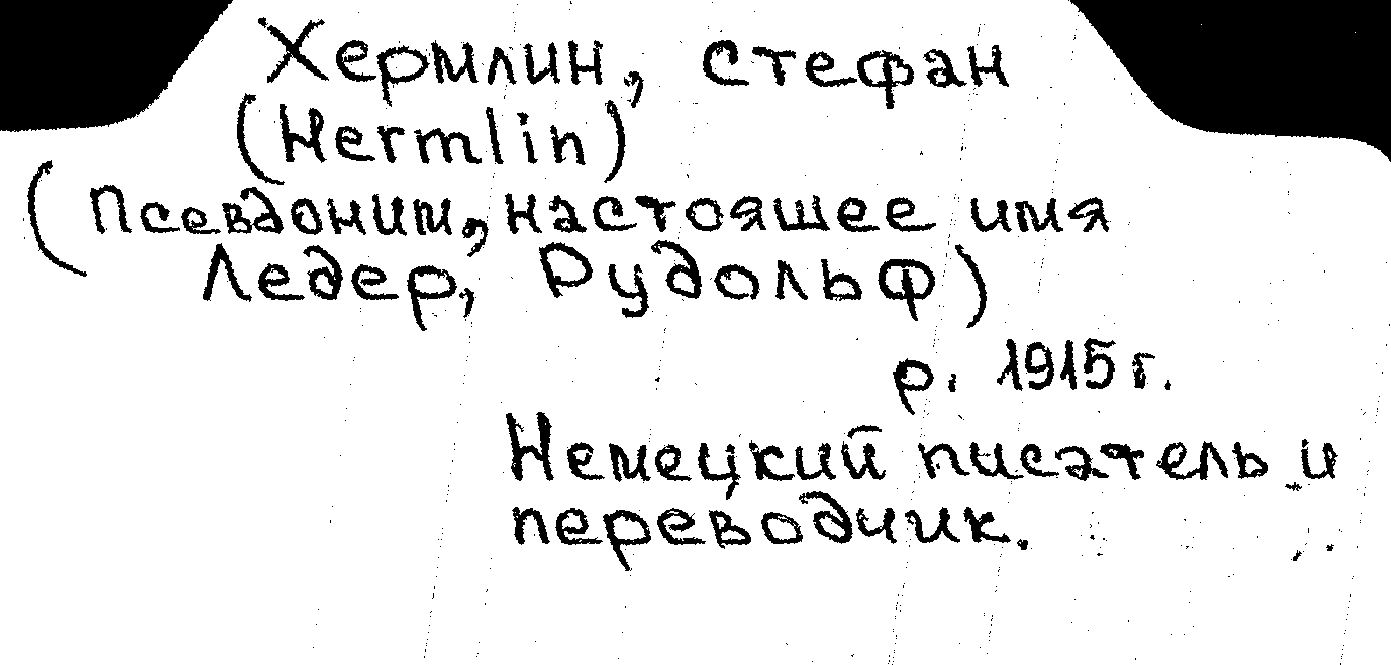 Хермлин, Стефан
(Hermlin)
(Псевдоним, настоящее имя
Ледер, Рудольф)
р. 1915 г.
Немецкий писатель и
переводчик.